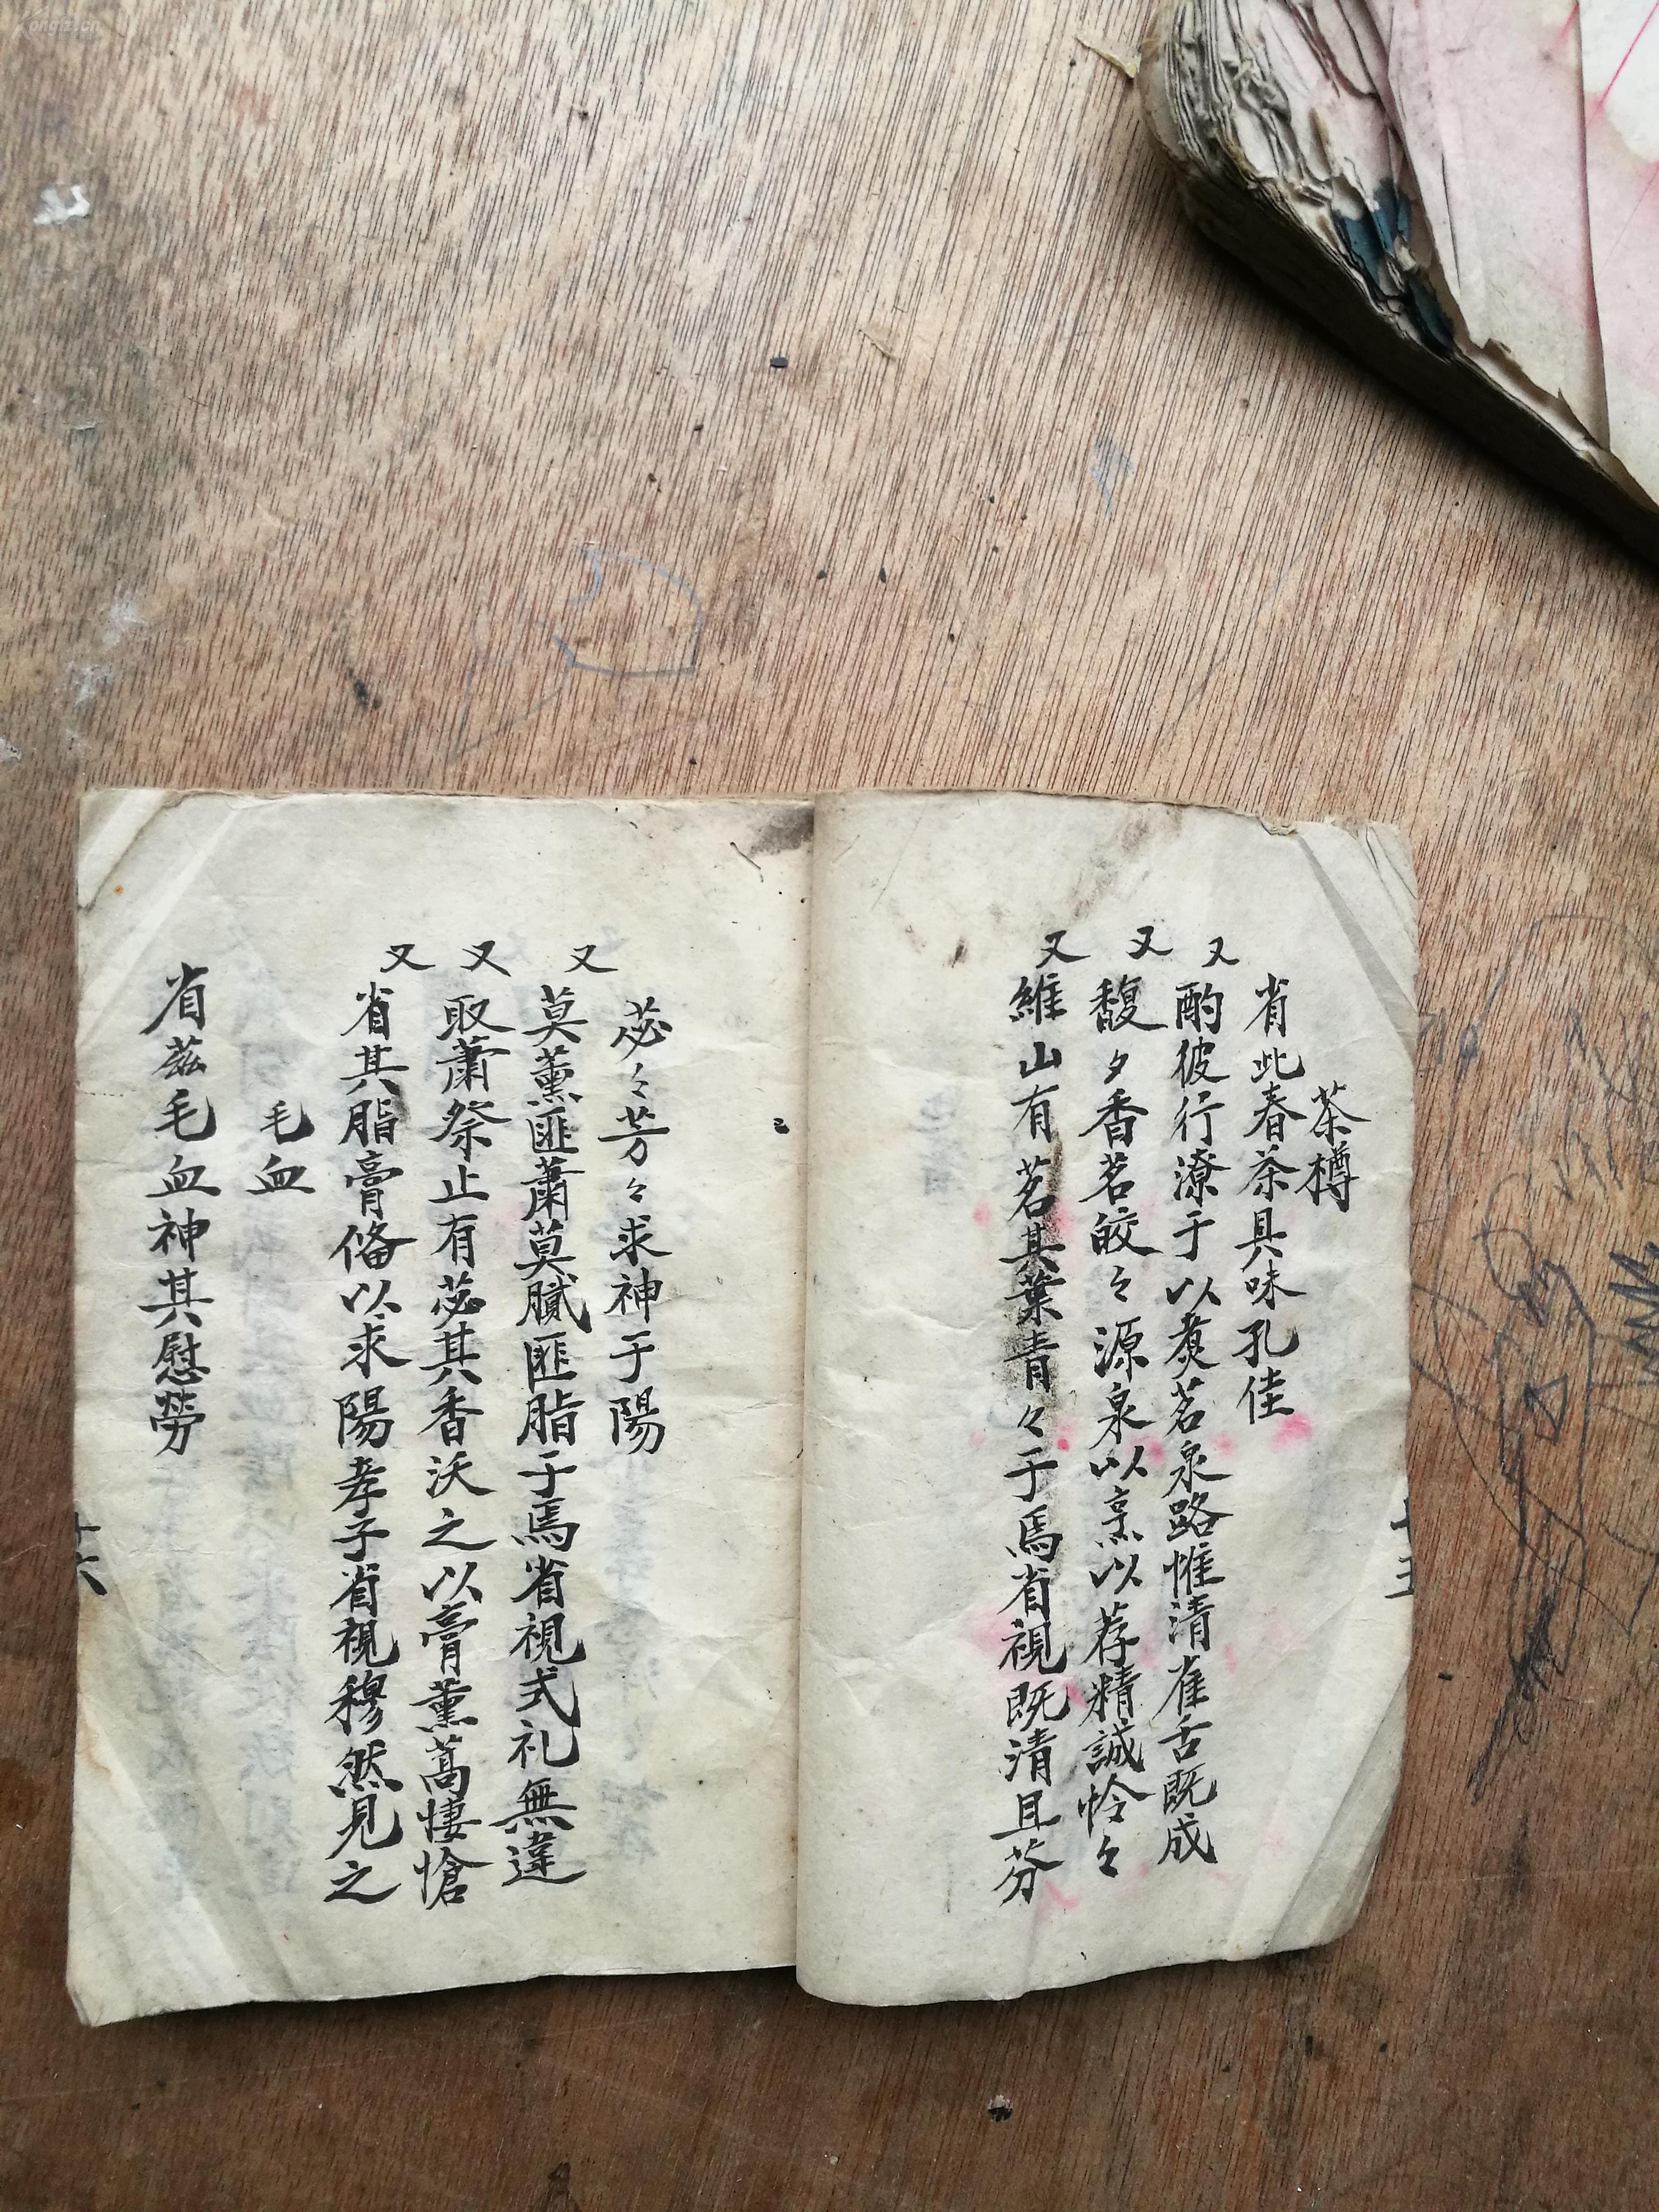 茶樽
省此春茶具味孔佳
又 酌彼行潦于以煑茗泉路惟清雀舌既成
又 馥々香茗皎々源泉以烹以荐精誠怜々
又 維山有茗其葉青々于焉省視既清且芬
苾々芳々求神于陽
又 莫薰匪蕭莫膩匪脂于焉省視式礼無違
又 取蕭祭止有苾其香沃之以膏薰蒿悽愴
又 省其脂膏俻以求陽孝子省視穆然見之
毛血
省茲毛血神其慰勞
十六